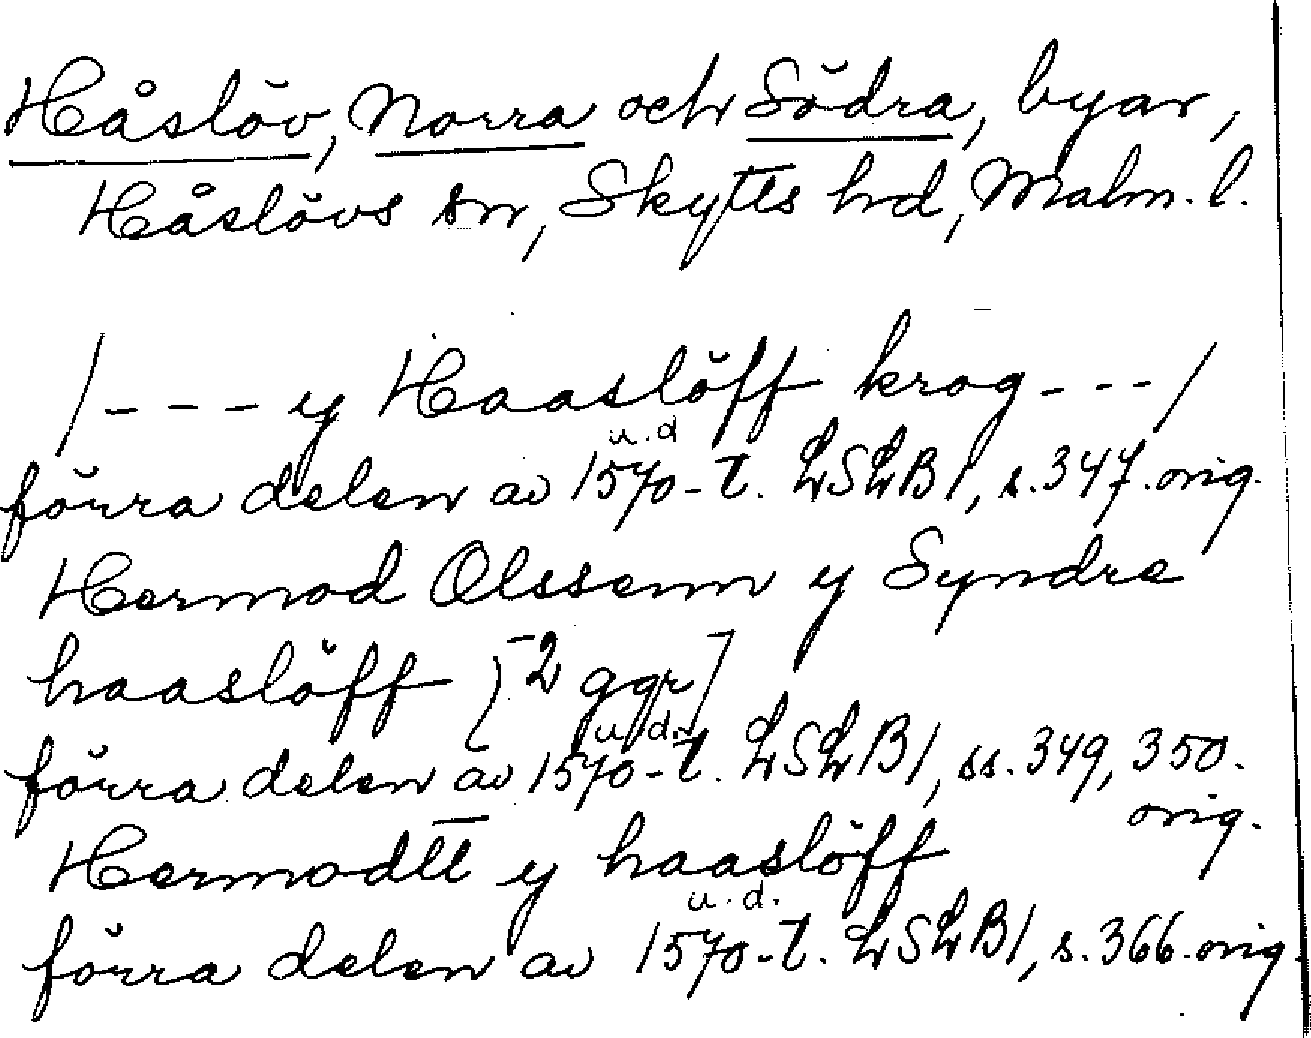 Håslöv, Norra och Södra, byar,
Håslövs sn, Skytts hd, Malm. l.
/- - - y Haaslöff krog - - -/
u.d
förra delen av 1570-t. LSLB1, s. 347. orig.
Hermod Olssenn y Syndre
haaslöff [2 ggr]
u.d.
förra delen av 1570-t. LSLB1, ss. 349, 350.
orig.
Hermodtt y haaslöff
u.d.
förra delen av 1570-t. LSLB1, s. 366. orig.